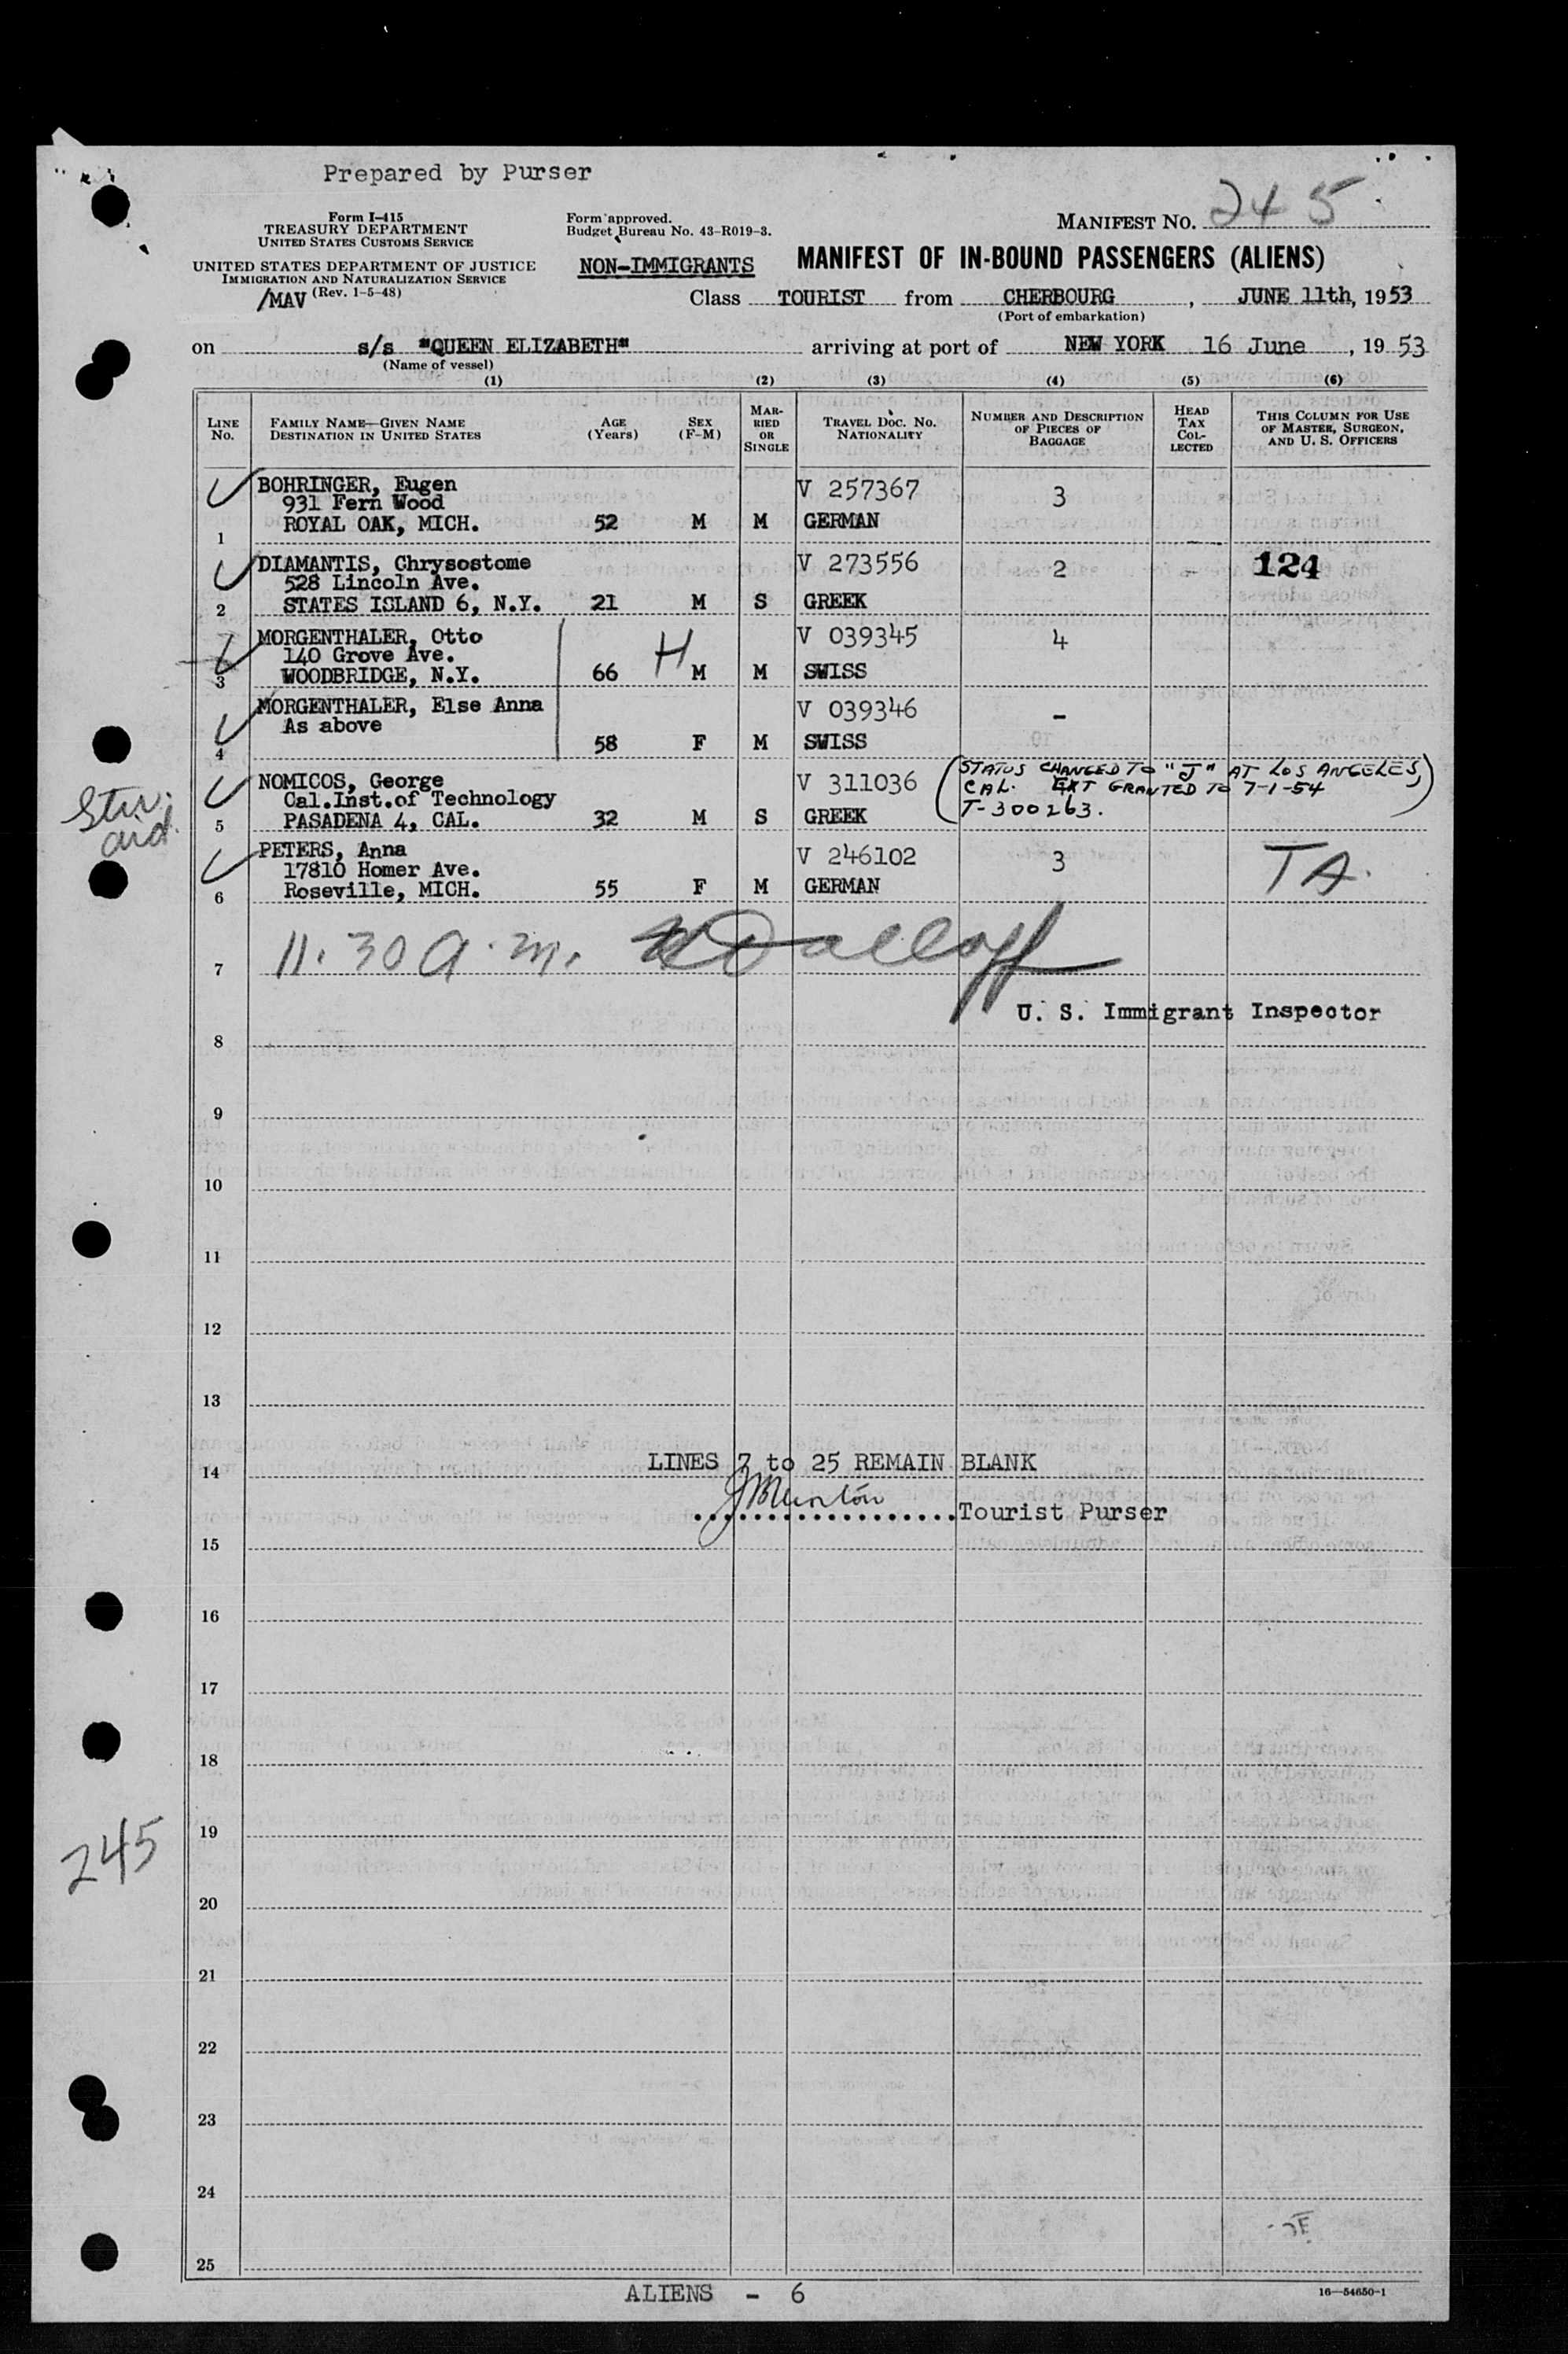 Prepared by Purser
Form I-415
TREASURY DEPARTMENT
UNITED STATES CUSTOMS SERVICE
UNITED STATES DEPARTMENT OF JUSTICE
IMMIGRATION AND NATURALIZATION SERVICE
/MAV (Rev. 1-5-48)
Form approved.
Budget Bureau No. 43-R019-3.
NON-IMMIGRANTS
MANIFEST NO. 245
MANIFEST OF IN-BOUND PASSENGERS (ALIENS)
Class TOURIST from CHERBOURG, JUNE 11th, 1953
(Port of embarkation)
on s/s "QUEEN ELIZABETH" arriving at port of NEW YORK 16 June, 1953
(Name of vessel)
(1) (2) (3) (4) (5) (6)
LINE No.
FAMILY NAME—GIVEN NAME
DESTINATION IN UNITED STATES
AGE (Years)
SEX (F-M)
MARRIED OR SINGLE
TRAVEL DOC. NO. NATIONALITY
NUMBER AND DESCRIPTION OF PIECES OF BAGGAGE
HEAD TAX COLLECTED
THIS COLUMN FOR USE OF MASTER, SURGEON, AND U. S. OFFICERS
BOHRINGER, Eugen V 257367 3
931 Fern Wood
1 ROYAL OAK, MICH. 52 M M GERMAN
DIAMANTIS, Chrysostome V 273556 2 - 124
528 Lincoln Ave.
2 STATES ISLAND 6, N.Y. 21 M S GREEK
MORGENTHALER, Otto H V 039345 4
140 Grove Ave.
3 WOODBRIDGE, N.Y. 66 M M SWISS
MORGENTHALER, Else Anna V 039346 -
As above
4 58 F M SWISS
NOMICOS, George V 311036 (STATUS CHANGED TO "J" AT LOS ANGELES,
Cal.Inst.of Technology CAL. EXT GRANTED TO 7-1-54
5 PASADENA 4, CAL. 32 M S GREEK T-300263.)
PETERS, Anna V 246102 3 TA.
17810 Homer Ave.
6 Roseville, MICH. 55 F M GERMAN
7 11.30 a.m.
U. S. Immigrant Inspector
8
9
10
11
12
13
LINES 7 to 25 REMAIN BLANK
14
Tourist Purser
15
16
17
18
245
19
20
21
22
23
24
25
ALIENS - 6
16—54650-1